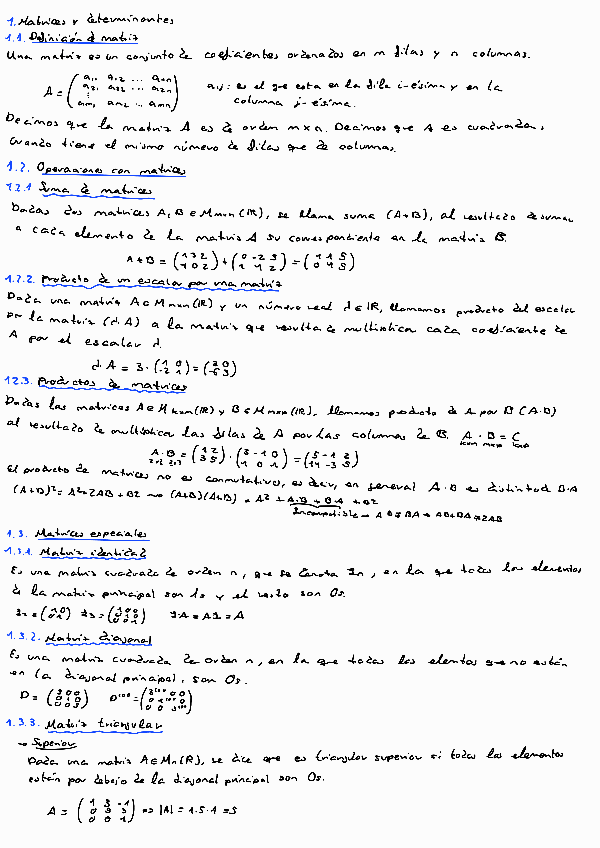 1. Matrices y determinantes
1.1. Definición de matriz
Una matriz es un conjunto de coeficientes ordenados en m filas y n columnas.
A = ( a11 a12 ... a1n      aij: es el que esta en la fila i-ésima y en la
a21 a22 ... a2n      columna j-ésima.
am1 am2 ... amn )
Decimos que la matriz A es de orden m x n. Decimos que A es cuadrada,
cuando tiene el mismo número de filas que de columnas.
1.2. Operaciones con matrices
1.2.1 Suma de matrices
Dadas dos matrices A, B ∈ Mmxn (IR), se llama suma (A+B), al resultado de sumar
a cada elemento de la matriz A su correspondiente en la matriz B.
A + B =
1.2.2. Producto de un escalar por una matriz
Dada una matriz A ∈ Mmxn (IR) y un número real d ∈ IR, llamamos producto del escalar
por la matriz (d·A) a la matriz que resulta de multiplicar cada coeficiente de
A por el escalar d.
d·A = 3 ·
1.2.3. Productos de matrices
Dadas las matrices A ∈ M (IR) y B ∈ M (IR), llamamos producto de A por B (A·B)
al resultado de multiplicar las filas de A por las columnas de B. A · B = C
A · B =
El producto de matrices no es conmutativo, es decir, en general A·B es distinto d B·A
(A+B)² = A²+2AB+B2 (A+B)(A+B) = A² + A·B + B·A + B2
1.3. Matrices especiales
1.3.1. Matriz identidad
Es una matriz cuadrada de orden n, que se denota In, en la que todos los elementos
de la matriz principal son 1s y el resto son 0s.
I·A = A·I = A
1.3.2. Matriz diagonal
Es una matriz cuadrada de orden n, en la que todos los elemtos que no están
en la diagonal principal, son 0s.
D =
1.3.3. Matriz triangular
→ Superior
Dada una matriz A ∈ Mn(R), se dice que es triangular superior si todos los elementos
están por debajo de la diagonal principal son 0s.
A = ⇒ |A| =